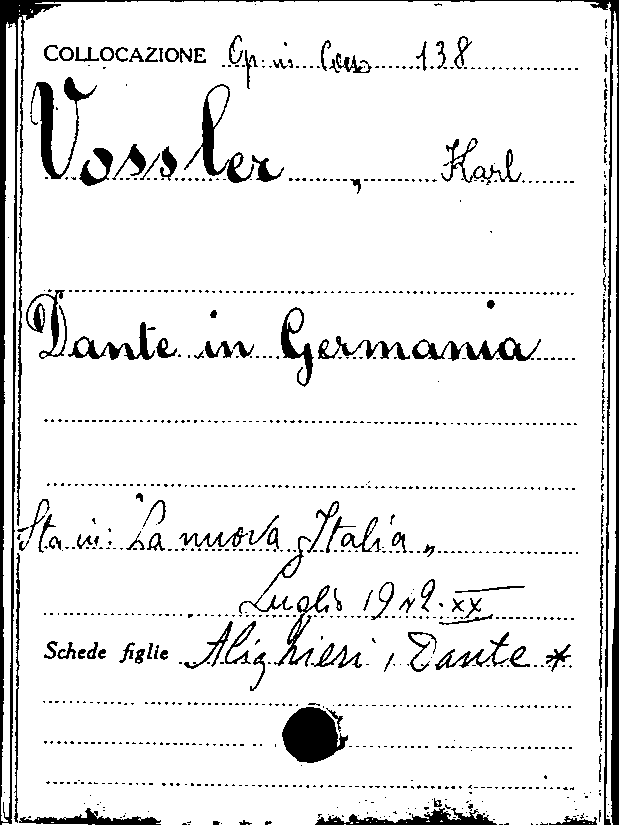 COLLOCAZIONE Op. in Cons 138
Vossler, Karl
Dante in Germania
Sta in: "La nuova Italia"
Luglio 1942.XX
Schede figlie Alighieri, Dante *